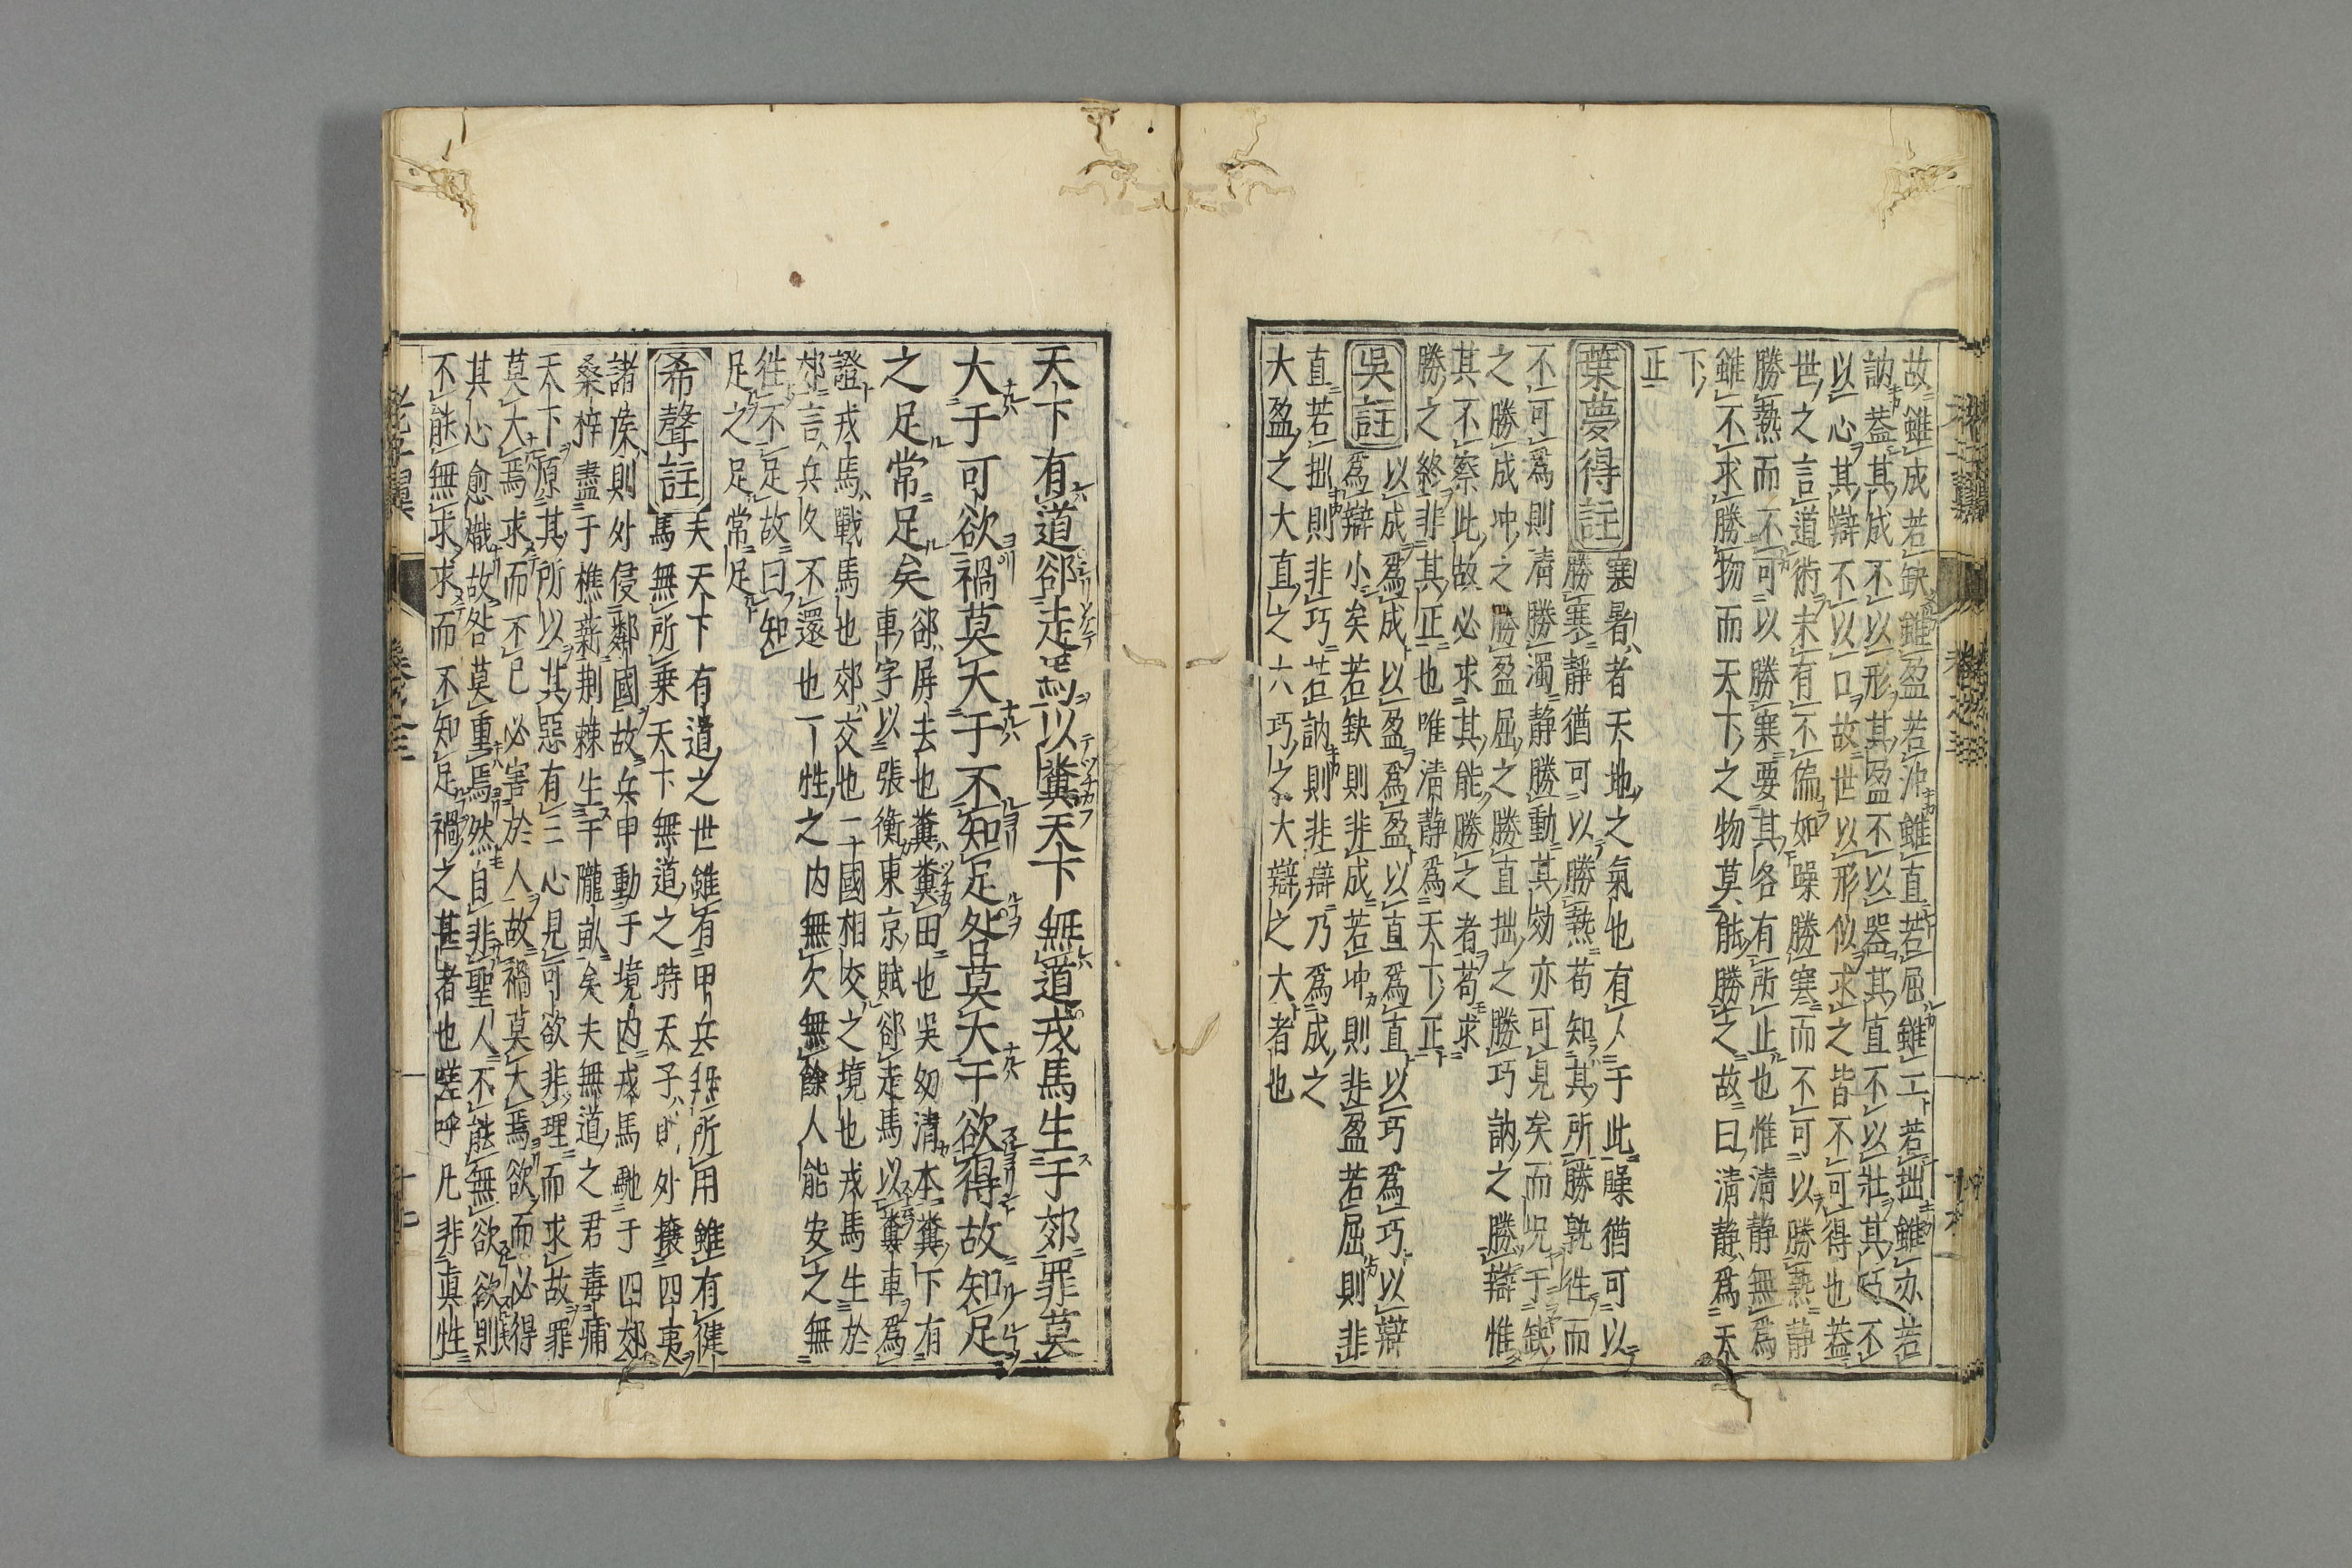 故雖成若缺雖盈若沖雖直若屈雖工若拙雖亦若
訥葢其成不以形其盈不以器其直不以壯其巧不
以心其辯不以口故世以形似求之皆不可得也葢
世之言道術未有不偏如躁勝寒而不可以勝熱静
勝熱而不可以勝寒要其各有所止也惟清静無爲
雖不求勝物而天下之物莫能勝之故曰清静爲天
下
正
葉夢得註
寒暑者天地之氣也有人于此躁猶可以
勝寒靜猶可以勝熱苟知其所勝孰徃而
不可爲則清勝濁静勝動其効亦可見矣而况于缺
之勝成冲之勝盈屈之勝直拙之勝巧訥之勝辯惟
其不察此故必求其能勝之者苟求
勝之終非其正也唯清静爲天下正
吳註
以成爲成以盈爲盈以直爲直以巧爲巧以辯
爲辯小矣若缺則非成若冲則非盈若屈則非
直若拙則非巧若訥則非辯乃爲成之
大盈之大直之大巧之大辯之大者也
天下有道郤走馬以糞天下無道戎馬生于郊罪莫
大于可欲禍莫大于不知足咎莫大于欲得故知足
之足常足矣
郤屏去也糞糞田也吳㓜清本糞下有
車字以張衡東京賦郤走馬以糞車爲
證戎馬戰馬也郊交也二國相交之境也戎馬生於
郊言兵久不還也丁性之内無欠無餘人能安之無
徃不足故曰知
足之足常足
希聲註
夫天下有道之世雖有甲兵無所用雖有健
馬無所乗天下無道之時天子則外攘四夷
諸矦則外侵鄰國故兵甲動于境内戎馬馳于四郊
桑梓盡于樵薪荆棘生于隴畝矣夫無道之君毒痡
天下原其所以其惡有三心見可欲非理而求故罪
莫大焉求而不已必害於人故禍莫大焉欲而必得
其心愈熾故咎莫重焉然自非聖人不能無欲欲則
不能無求求而不知足禍之甚者也嗟呼凡非眞性
老子翼
卷之三
十七